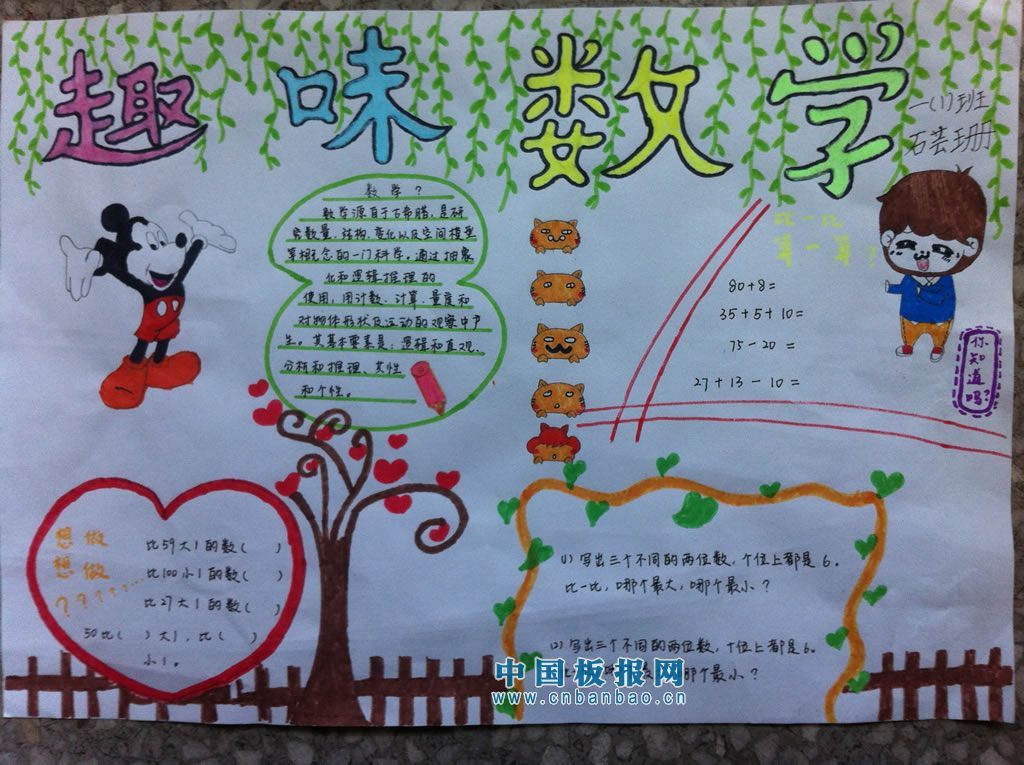 趣味数学
一(1)班
石芸珊
数学?
数学源自于古希腊,是研
究数量、结构、变化以及空间模型
等概念的一门科学。通过抽象
化和逻辑推理的
使用,用计数、计算、量度和
对物体形状及运动的观察中产
生。其基本要素是:逻辑和直观、
分析和推理、共性
和个性。
比一比
算一算!
80+8=
35+5+10=
75-20 =
27+13-10=
你知道吗?
想做
想做
??????……
比59大1的数( )
比100小1的数( )
比27大1的数( )
50比( )大1,比( )
小1。
(1)写出三个不同的两位数,个位上都是6。
比一比,哪个最大,哪个最小?
(2)写出三个不同的两位数,个位上都是6。
哪个最小?
中国板报网
www.cnbanbao.cn